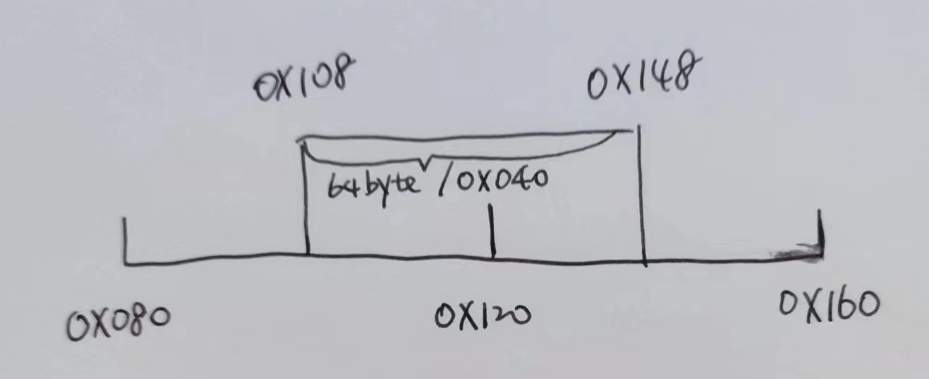 0X108 0X148
64byte / 0X040
0X080 0X120 0X160